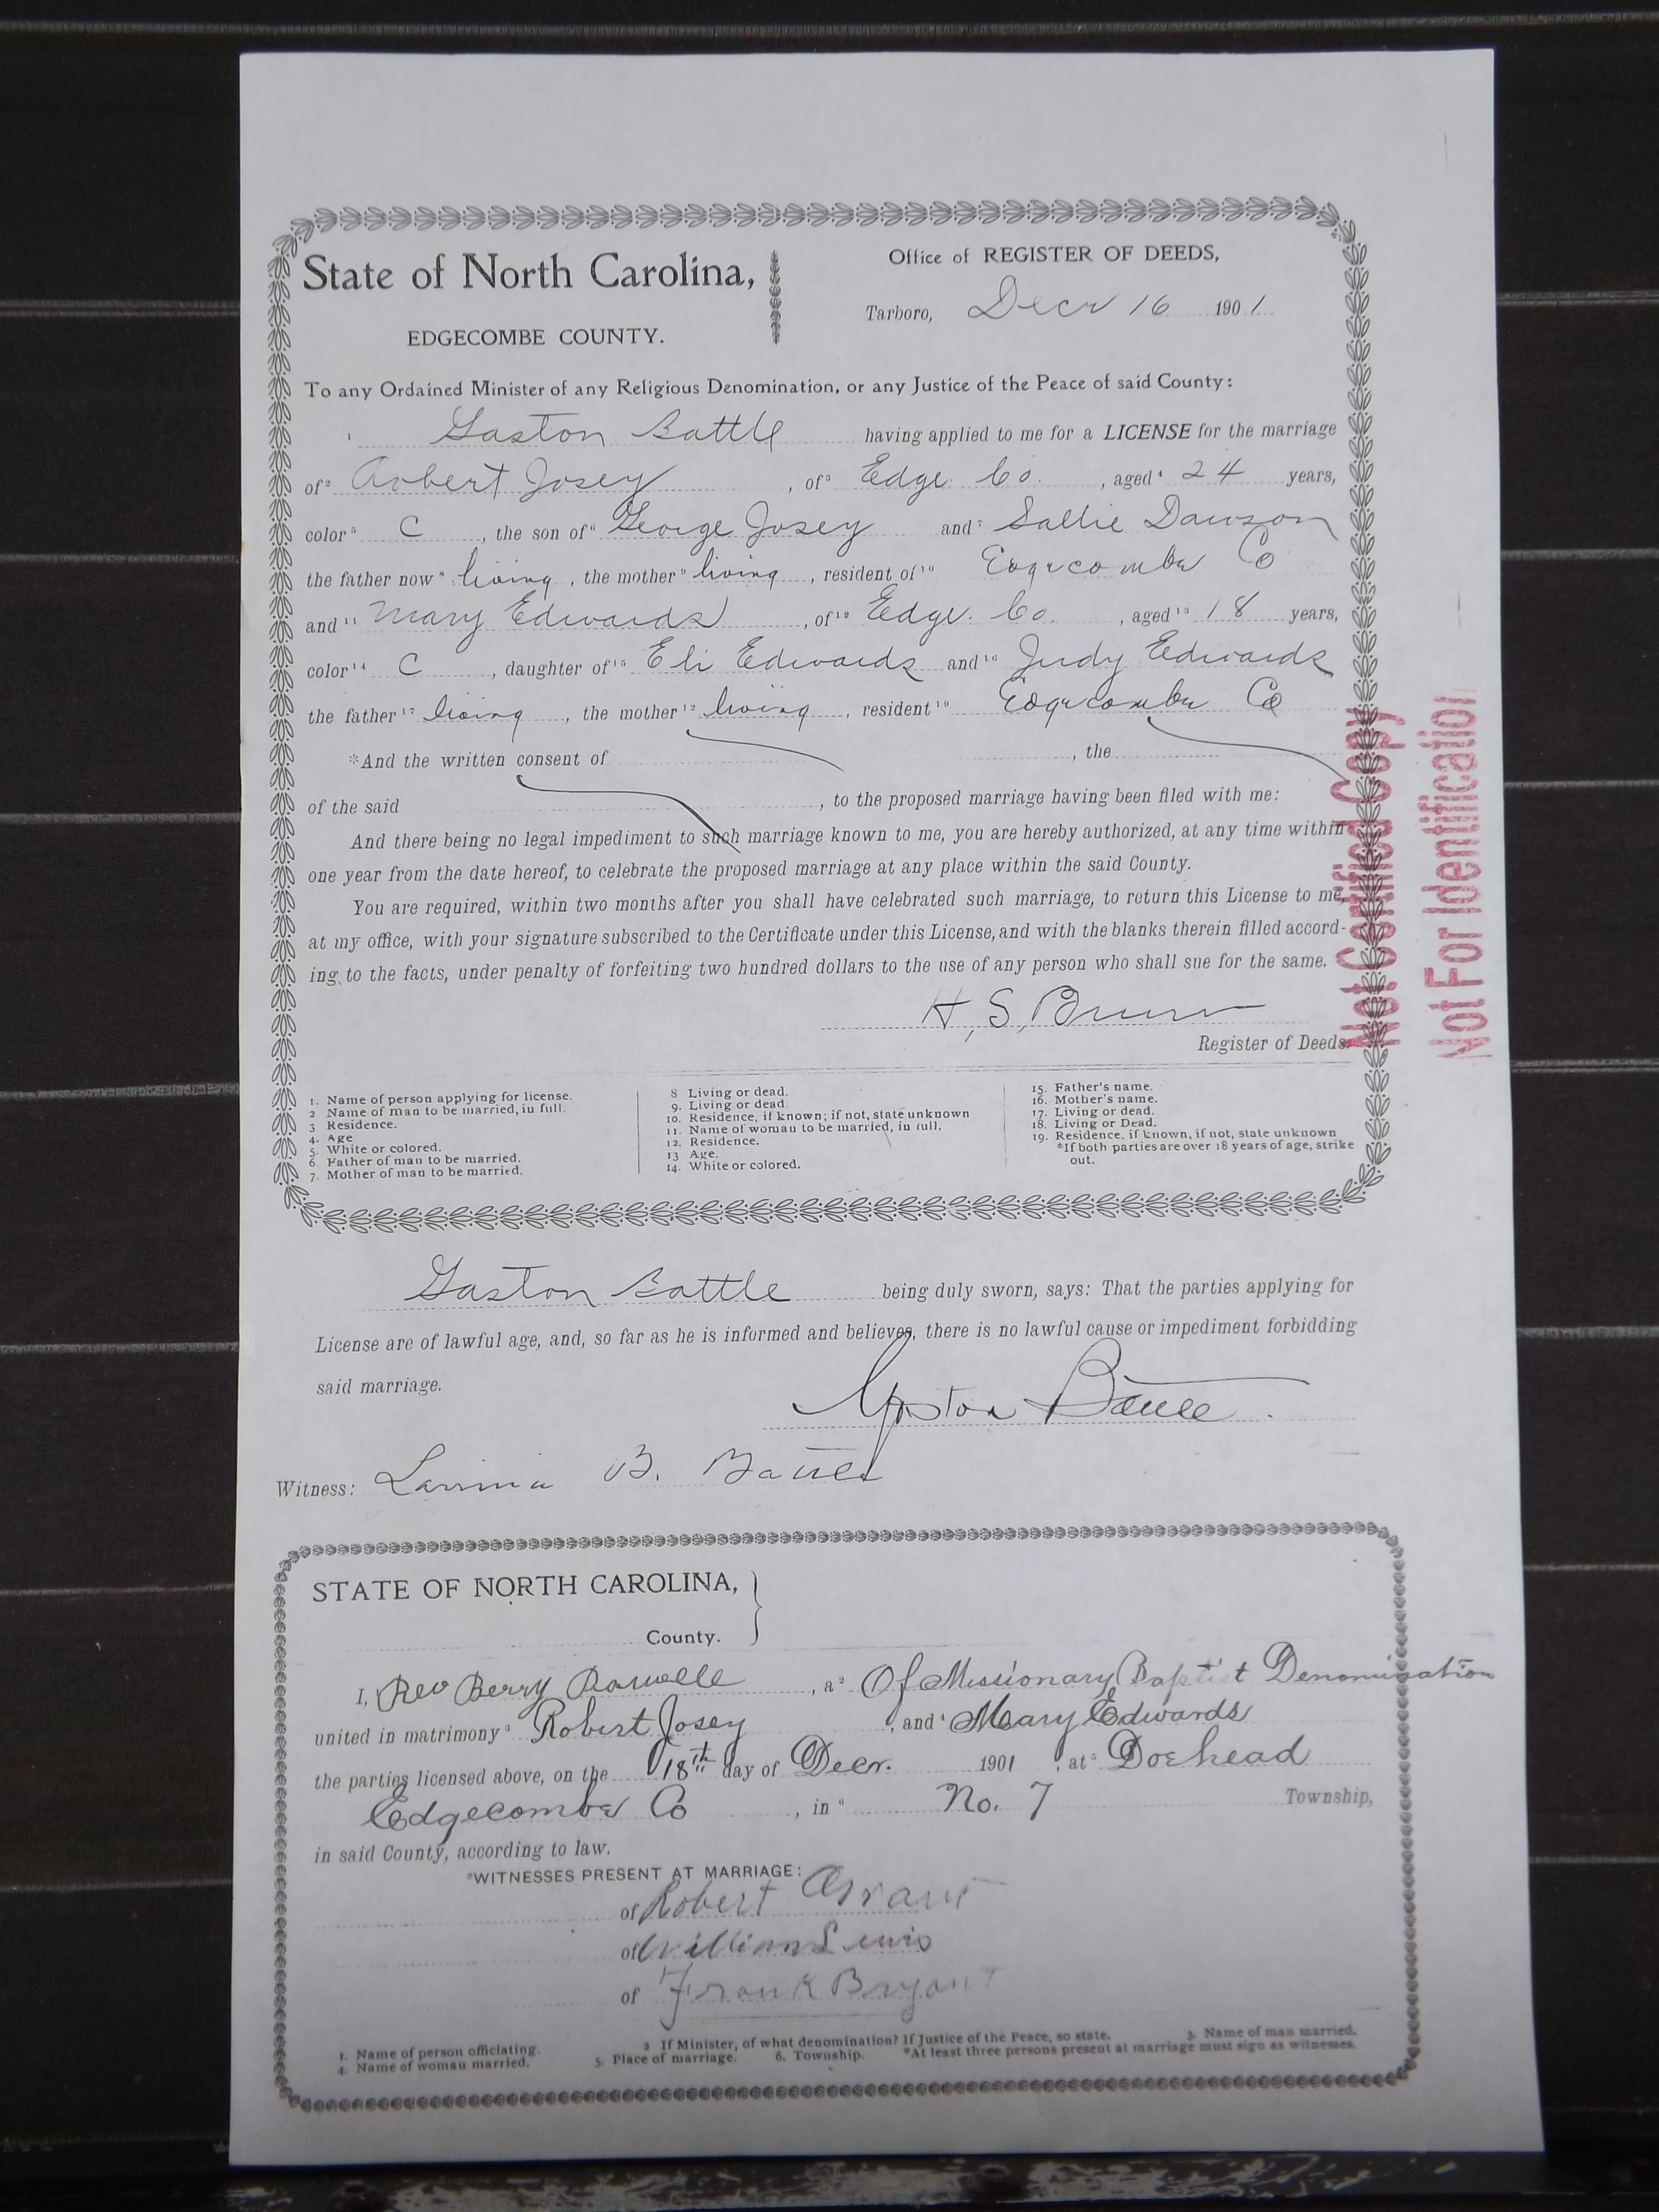 State of North Carolina,
EDGECOMBE COUNTY.
Office of REGISTER OF DEEDS,
Tarboro, Decr 16 1901
To any Ordained Minister of any Religious Denomination, or any Justice of the Peace of said County:
1 Gaston Battle having applied to me for a LICENSE for the marriage
of2 Robert Josey, of3 Edge Co., aged4 24 years,
color5 C, the son of6 George Josey and7 Sallie Dawson
the father now8 living, the mother9 living, resident of10 Edgecombe Co
and11 Mary Edwards, of12 Edge. Co., aged13 18 years,
color14 C, daughter of15 Eli Edwards and16 Judy Edwards
the father17 living, the mother18 living, resident19 Edgecombe Co
*And the written consent of , the
of the said , to the proposed marriage having been filed with me:
And there being no legal impediment to such marriage known to me, you are hereby authorized, at any time within
one year from the date hereof, to celebrate the proposed marriage at any place within the said County.
You are required, within two months after you shall have celebrated such marriage, to return this License to me,
at my office, with your signature subscribed to the Certificate under this License, and with the blanks therein filled accord-
ing to the facts, under penalty of forfeiting two hundred dollars to the use of any person who shall sue for the same.
H. S.
Register of Deeds.
Not Certified Copy
Not For Identification
1. Name of person applying for license.
2 Name of man to be married, in full.
3 Residence.
4. Age
5. White or colored.
6. Father of man to be married.
7. Mother of man to be married.
8 Living or dead.
9. Living or dead.
10. Residence, if known; if not, state unknown
11. Name of woman to be married, in full.
12. Residence.
13 Age.
14. White or colored.
15. Father's name.
16. Mother's name.
17. Living or dead.
18. Living or Dead.
19. Residence, if known, if not, state unknown
*If both parties are over 18 years of age, strike
out.
Gaston Battle being duly sworn, says: That the parties applying for
License are of lawful age, and, so far as he is informed and believes, there is no lawful cause or impediment forbidding
said marriage.
Gaston Battle.
Witness: B. Battle
STATE OF NORTH CAROLINA,
County.
I, Rev Berry, a2 Of Missionary Baptist Denomination
united in matrimony3 Robert Josey, and4 Mary Edwards
the parties licensed above, on the 18th day of Decr. 1901, at5 Doehead
Edgecombe Co, in6 No. 7 Township,
in said County, according to law.
*WITNESSES PRESENT AT MARRIAGE:
of Robert Grant
of William Lewis
of Frank Bryant
1. Name of person officiating. 2 If Minister, of what denomination? If Justice of the Peace, so state. 3. Name of man married.
4. Name of woman married. 5. Place of marriage. 6. Township. *At least three persons present at marriage must sign as witnesses.